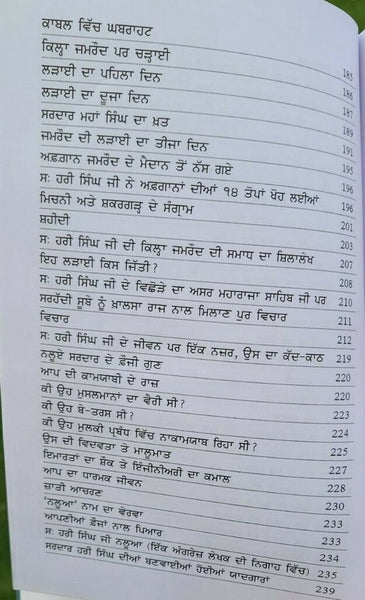 ਕਾਬਲ ਵਿੱਚ ਘਬਰਾਹਟ
ਕਿਲ੍ਹਾ ਜਮਰੌਦ ਪਰ ਚੜ੍ਹਾਈ 185
ਲੜਾਈ ਦਾ ਪਹਿਲਾ ਦਿਨ 186
ਲੜਾਈ ਦਾ ਦੂਜਾ ਦਿਨ 187
ਸਰਦਾਰ ਮਹਾਂ ਸਿੰਘ ਦਾ ਖ਼ਤ 189
ਜਮਰੌਦ ਦੀ ਲੜਾਈ ਦਾ ਤੀਜਾ ਦਿਨ 191
ਅਫ਼ਗਾਨ ਜਮਰੌਦ ਦੇ ਮੈਦਾਨ ਤੋਂ ਨੱਸ ਗਏ 195
ਸ: ਹਰੀ ਸਿੰਘ ਜੀ ਨੇ ਅਫ਼ਗਾਨਾਂ ਦੀਆਂ ੧੪ ਤੋਪਾਂ ਖੋਹ ਲਈਆਂ 196
ਮਿਚਨੀ ਅਤੇ ਸ਼ਕਰਗੜ੍ਹ ਦੇ ਸੰਗ੍ਰਾਮ 196
ਸ਼ਹੀਦੀ 201
ਸ: ਹਰੀ ਸਿੰਘ ਜੀ ਦੀ ਕਿਲ੍ਹਾ ਜਮਰੌਦ ਦੀ ਸਮਾਧ ਦਾ ਸ਼ਿਲਾਲੇਖ 203
ਇਹ ਲੜਾਈ ਕਿਸ ਜਿੱਤੀ ? 207
ਸ: ਹਰੀ ਸਿੰਘ ਜੀ ਦੇ ਵਿਛੋੜੇ ਦਾ ਅਸਰ ਮਹਾਰਾਜਾ ਸਾਹਿਬ ਜੀ ਪਰ 208
ਸਰਹੱਦੀ ਸੂਬੇ ਨੂੰ ਖ਼ਾਲਸਾ ਰਾਜ ਨਾਲ ਮਿਲਾਣ ਪੁਰ ਵਿਚਾਰ 210
ਵਿਚਾਰ 211
ਸ: ਹਰੀ ਸਿੰਘ ਜੀ ਦੇ ਜੀਵਨ ਪਰ ਇੱਕ ਨਜ਼ਰ, ਉਸ ਦਾ ਕੱਦ-ਕਾਠ 212
ਨਲੂਏ ਸਰਦਾਰ ਦੇ ਫ਼ੌਜੀ ਗੁਣ 219
ਆਪ ਦੀ ਕਾਮਯਾਬੀ ਦੇ ਰਾਜ਼ 220
ਕੀ ਉਹ ਮੁਸਲਮਾਨਾਂ ਦਾ ਵੈਰੀ ਸੀ ? 220
ਕੀ ਉਹ ਬੇ-ਤਰਸ ਸੀ ? 223
ਕੀ ਉਹ ਮੁਲਕੀ ਪ੍ਰਬੰਧ ਵਿੱਚ ਨਾਕਾਮਯਾਬ ਰਿਹਾ ਸੀ ? 224
ਉਸ ਦੀ ਵਿਦਵਤਾ ਤੇ ਮਾਲੂਮਾਤ 225
ਇਮਾਰਤਾਂ ਦਾ ਸ਼ੌਕ ਤੇ ਇੰਜੀਨੀਅਰੀ ਦਾ ਕਮਾਲ 227
ਆਪ ਦਾ ਧਾਰਮਕ ਜੀਵਨ 228
ਜ਼ਾਤੀ ਆਚਰਣ 230
'ਨਲੂਆ' ਨਾਮ ਦਾ ਵੇਰਵਾ 233
ਆਪਣੀਆਂ ਫ਼ੌਜਾਂ ਨਾਲ ਪਿਆਰ 233
ਸ: ਹਰੀ ਸਿੰਘ ਜੀ ਨਲੂਆ (ਇੱਕ ਅੰਗਰੇਜ਼ ਲੇਖਕ ਦੀ ਨਿਗਾਹ ਵਿੱਚ) 234
ਸਰਦਾਰ ਹਰੀ ਸਿੰਘ ਦੀਆਂ ਬਣਵਾਈਆਂ ਹੋਈਆਂ ਯਾਦਗਾਰਾਂ 235
239